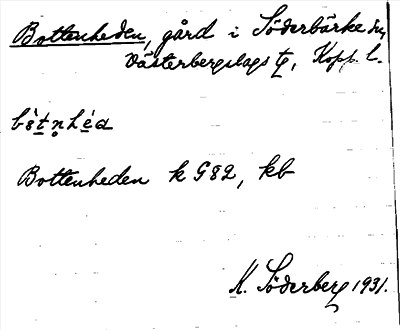 Bottenheden, gård i Söderbärke sn,
Västerbergslags tg, Kopp. l.
bètn̥héa
Bottenheden k G82, kb
K. Söderberg 1931.